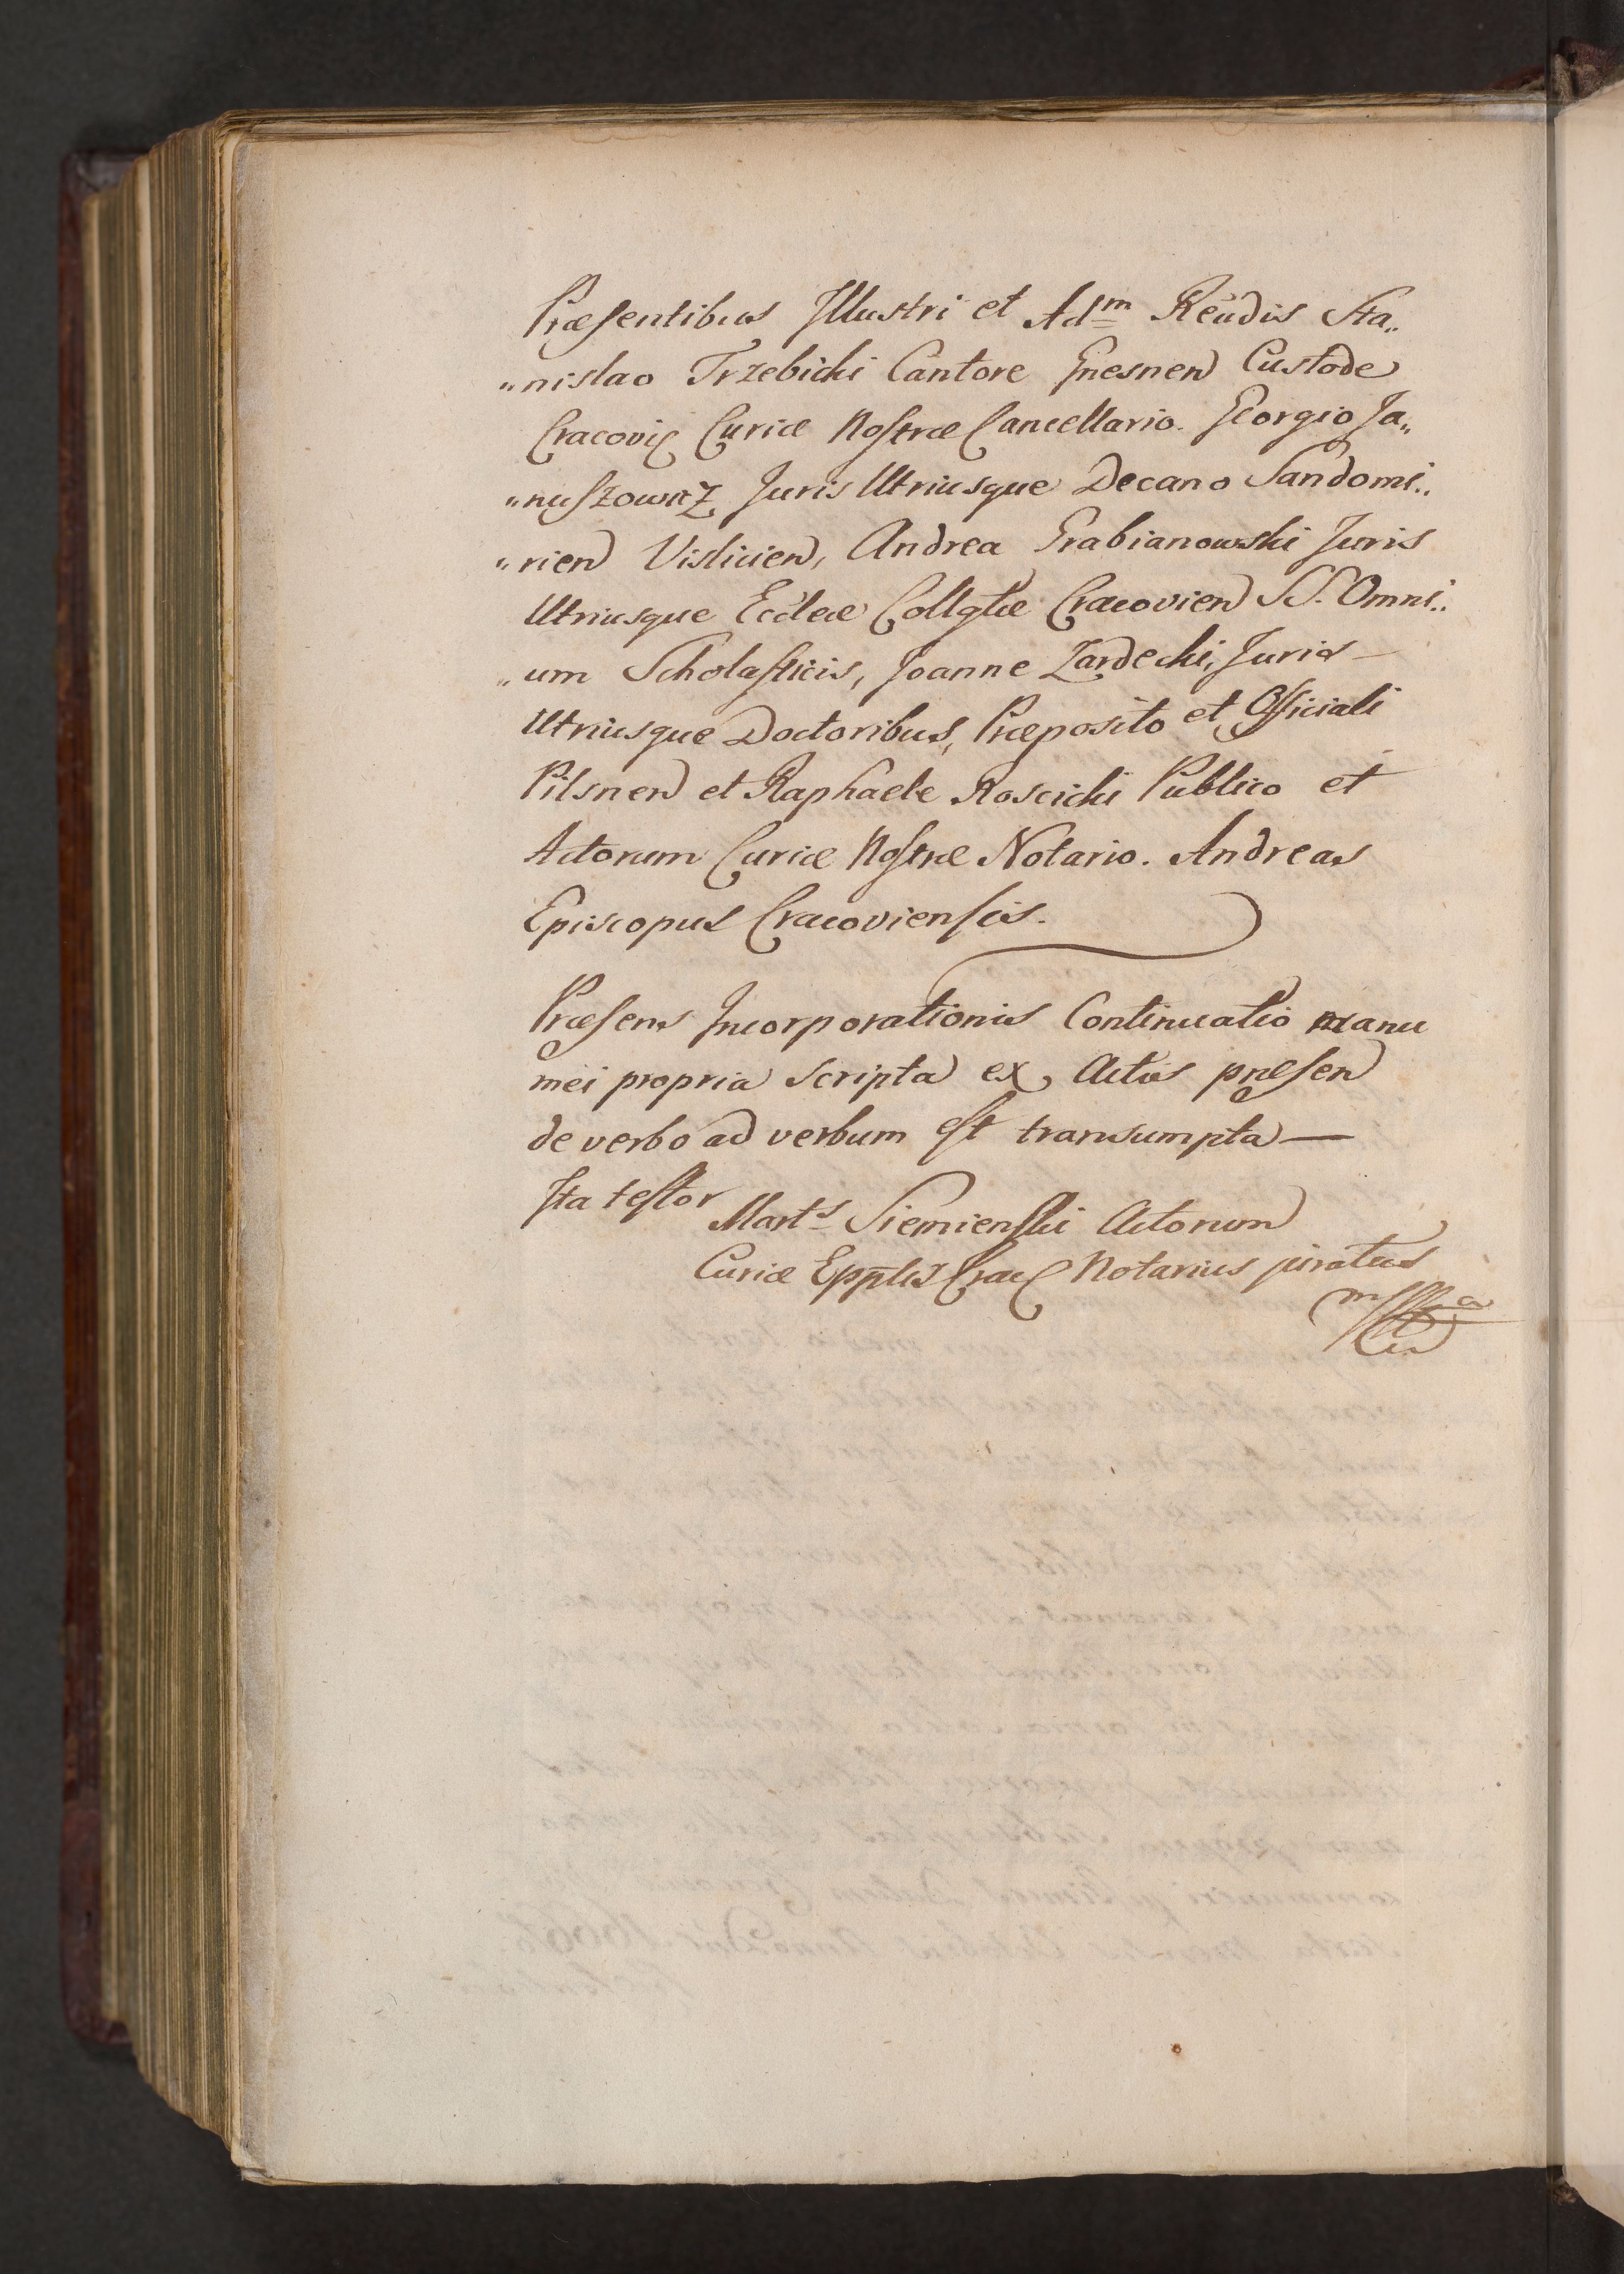 Præsentibus Illustri et Adm Reũdis Sta„
„nislao Trzebicki Cantore Gnesnen Custode
Cracovię Curiæ Nostræ Cancellario. Georgio Ja„
„nuszowicz Juris Utriusque Decano Sandomi„
„rien Vislicien, Andrea Grabianowski Juris
Utriusque Eccleæ Collgtæ Cracovien SS. Omni„
„um Scholasticis, Joanne Zardecki, Juris –
Utriusque Doctoribus, Præposito et Officiali
Pilsnen et Raphaele Roscicki Publico et
Actorum Curiæ Nostræ Notario. Andreas
Episcopus Cracoviensis.
Præsens Incorporationis Continuatio manu
mei propria scripta ex Actis præsen
de verbo ad verbum est transumpta —
Ita testor Marts Siemienski Actorum
Curiæ Epplis Crac Notarius juratus